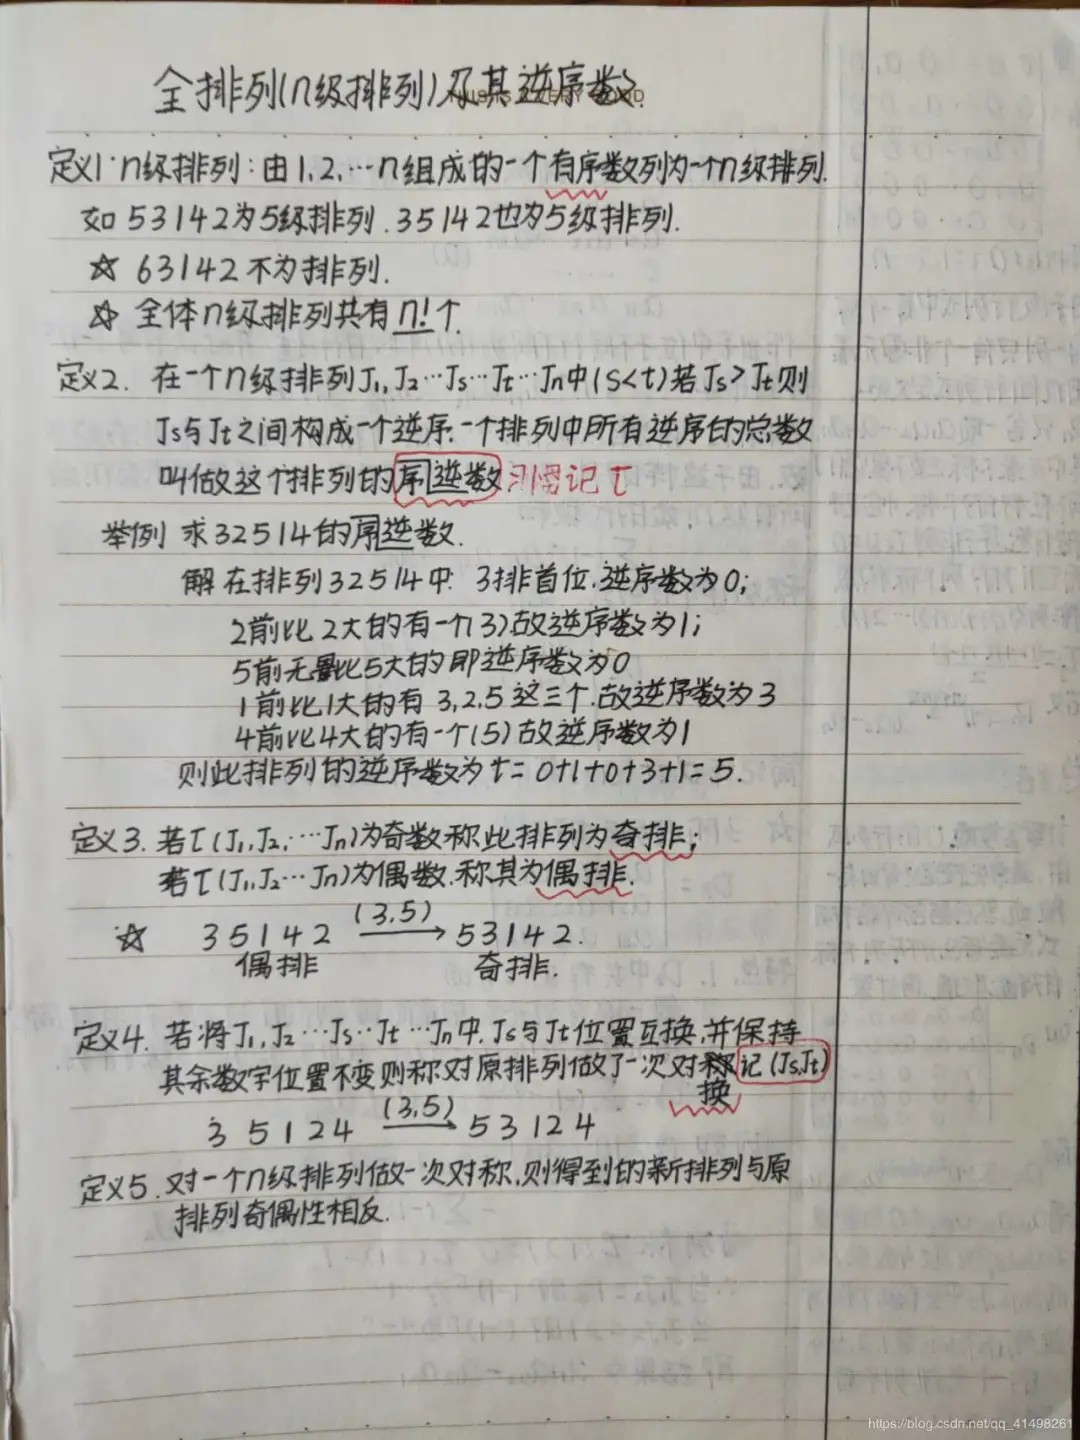 全排列(n级排列)及其逆序数.
定义1·n级排列:由1,2,…n组成的一个有序数列为一个n级排列.
如53142为5级排列.35142也为5级排列.
☆ 63142不为排列.
☆ 全体n级排列共有n!个.
定义2. 在一个n级排列J₁,J₂…Js…Jt…Jn中(s<t)若Js>Jt则
Js与Jt之间构成一个逆序.一个排列中所有逆序的总数
叫做这个排列的序逆数 习惯记τ
举例 求32514的序逆数.
解 在排列32514中. 3排首位.逆序数为0;
2前比2大的有一个(3)故逆序数为1;
5前无比5大的即逆序数为0
1前比1大的有3,2,5这三个.故逆序数为3
4前比4大的有一个(5)故逆序数为1
则此排列的逆序数为t=0+1+0+3+1=5.
定义3. 若τ(J₁,J₂,…Jn)为奇数称此排列为奇排;
若τ(J₁,J₂…Jn)为偶数.称其为偶排.
(3,5)
☆ 35142 → 53142.
偶排 奇排.
定义4. 若将J₁,J₂…Js…Jt…Jn中.Js与Jt位置互换,并保持
其余数字位置不变则称对原排列做了一次对换 记(Js,Jt)
(3,5)
35124 → 53124
定义5. 对一个n级排列做一次对称,则得到的新排列与原
排列奇偶性相反.
https://blog.csdn.net/qq_41498261